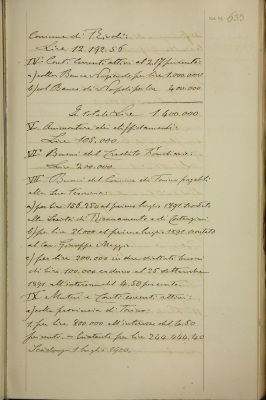 633
Comune di Rivoli:
Lire 12.192.56
IV Conti Correnti attivi al 21 presente:
a) colla Banca per lire 1.000.000
b) col Banco di Napoli per lire 400.000
In totale Lire 1.400.000
V
Lire 105.000
VI Buoni del Credito Fondiario:
Lire 200.000
VII Buoni del Comune di Torino pagabili
alla sua Tesoreria:
a) per lire 156.250 al primo luglio 1891
alla Società di Risanamento ed
b) per lire 21.000 al primo luglio 1891
al Cav. Giuseppe
c) per lire 200.000 in due distinti buoni
di lire 100.000 caduno al 25 settembre
1891 all'interesse del 4.50 per cento
IX Mutui e Conti correnti attivi:
a) colla provincia di Torino
1 per lire 800.000 all'interesse del 4.50
per cento - per lire 244.444.40
Scadenza 1 luglio 1900.